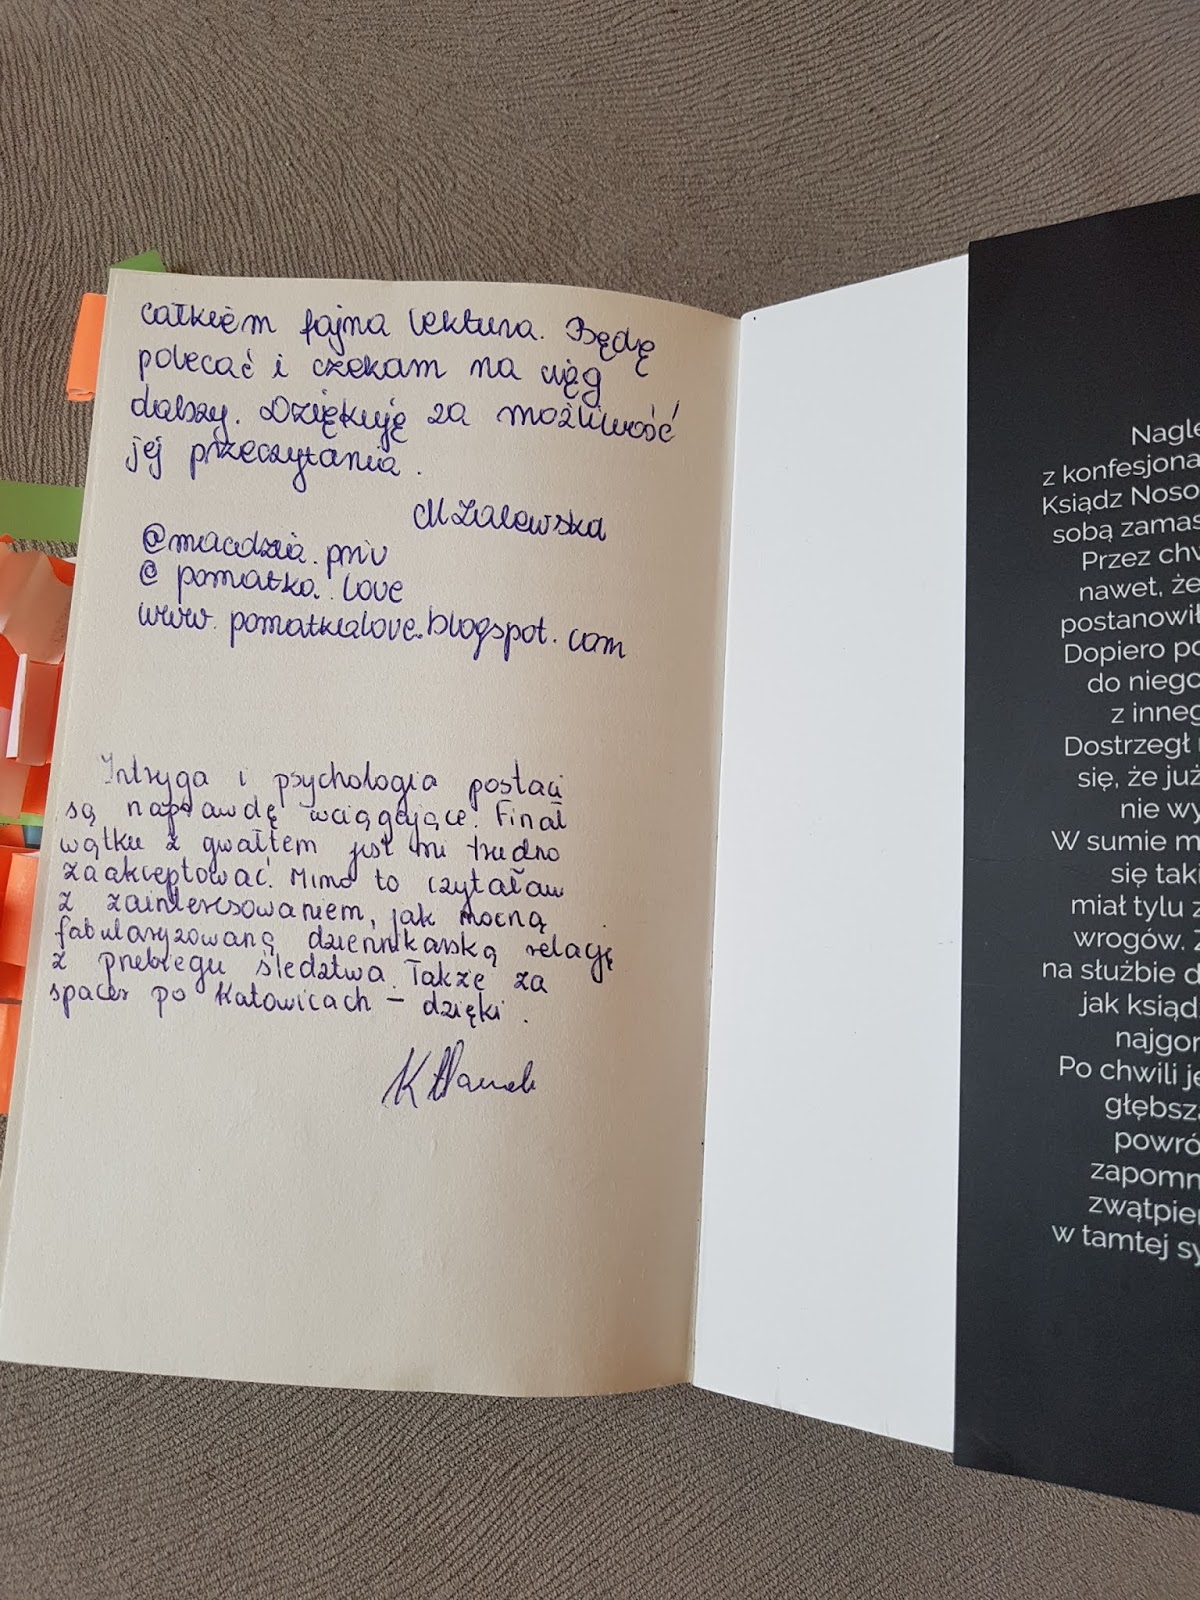 całkiem fajna lektura. Będę
polecać i czekam na ciąg
dalszy. Dziękuję za możliwość
jej przeczytania.
M Zalewska
@macdzia.priv
@pomatka.love
www.pomatkalove.blogspot.com
Intryga i psychologia postaci
są naprawdę wciągające. Finał
wątku z gwałtem jest mi trudno
zaakceptować. Mimo to czytałam
z zainteresowaniem, jak mocną
fabularyzowaną dziennikarską relację
z przebiegu śledztwa. Także za
spacer po Katowicach – dzięki.
Nagle
z konfesjona
Ksiądz Noso
sobą zamas
Przez chw
nawet, że
postanowił
Dopiero po
do niego
z inneg
Dostrzegł
się, że już
nie wy
W sumie m
się taki
miał tylu z
wrogów. Z
na służbie d
jak ksiąd
najgor
Po chwili je
głębsz
powró
zapomn
zwątpie
w tamtej sy